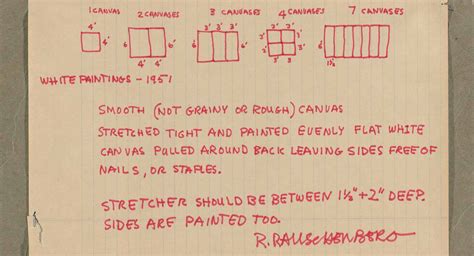 1 CANVAS 2 CANVASES 3 CANVASES 4 CANVASES 7 CANVASES
4' 3' 3' 3' 2' 2'
4' 6' 6' 6' 6' 2' 2' 6' 6'
4' 4' 3' 3' 3' 2' 2'
WHITE PAINTINGS – 1951
SMOOTH (NOT GRAINY OR ROUGH) CANVAS
STRETCHED TIGHT AND PAINTED EVENLY FLAT WHITE
CANVAS PULLED AROUND BACK LEAVING SIDES FREE OF
NAILS, OR STAPLES.
STRETCHER SHOULD BE BETWEEN 1½" + 2" DEEP.
SIDES ARE PAINTED TOO.
R. RAUSCHENBERG